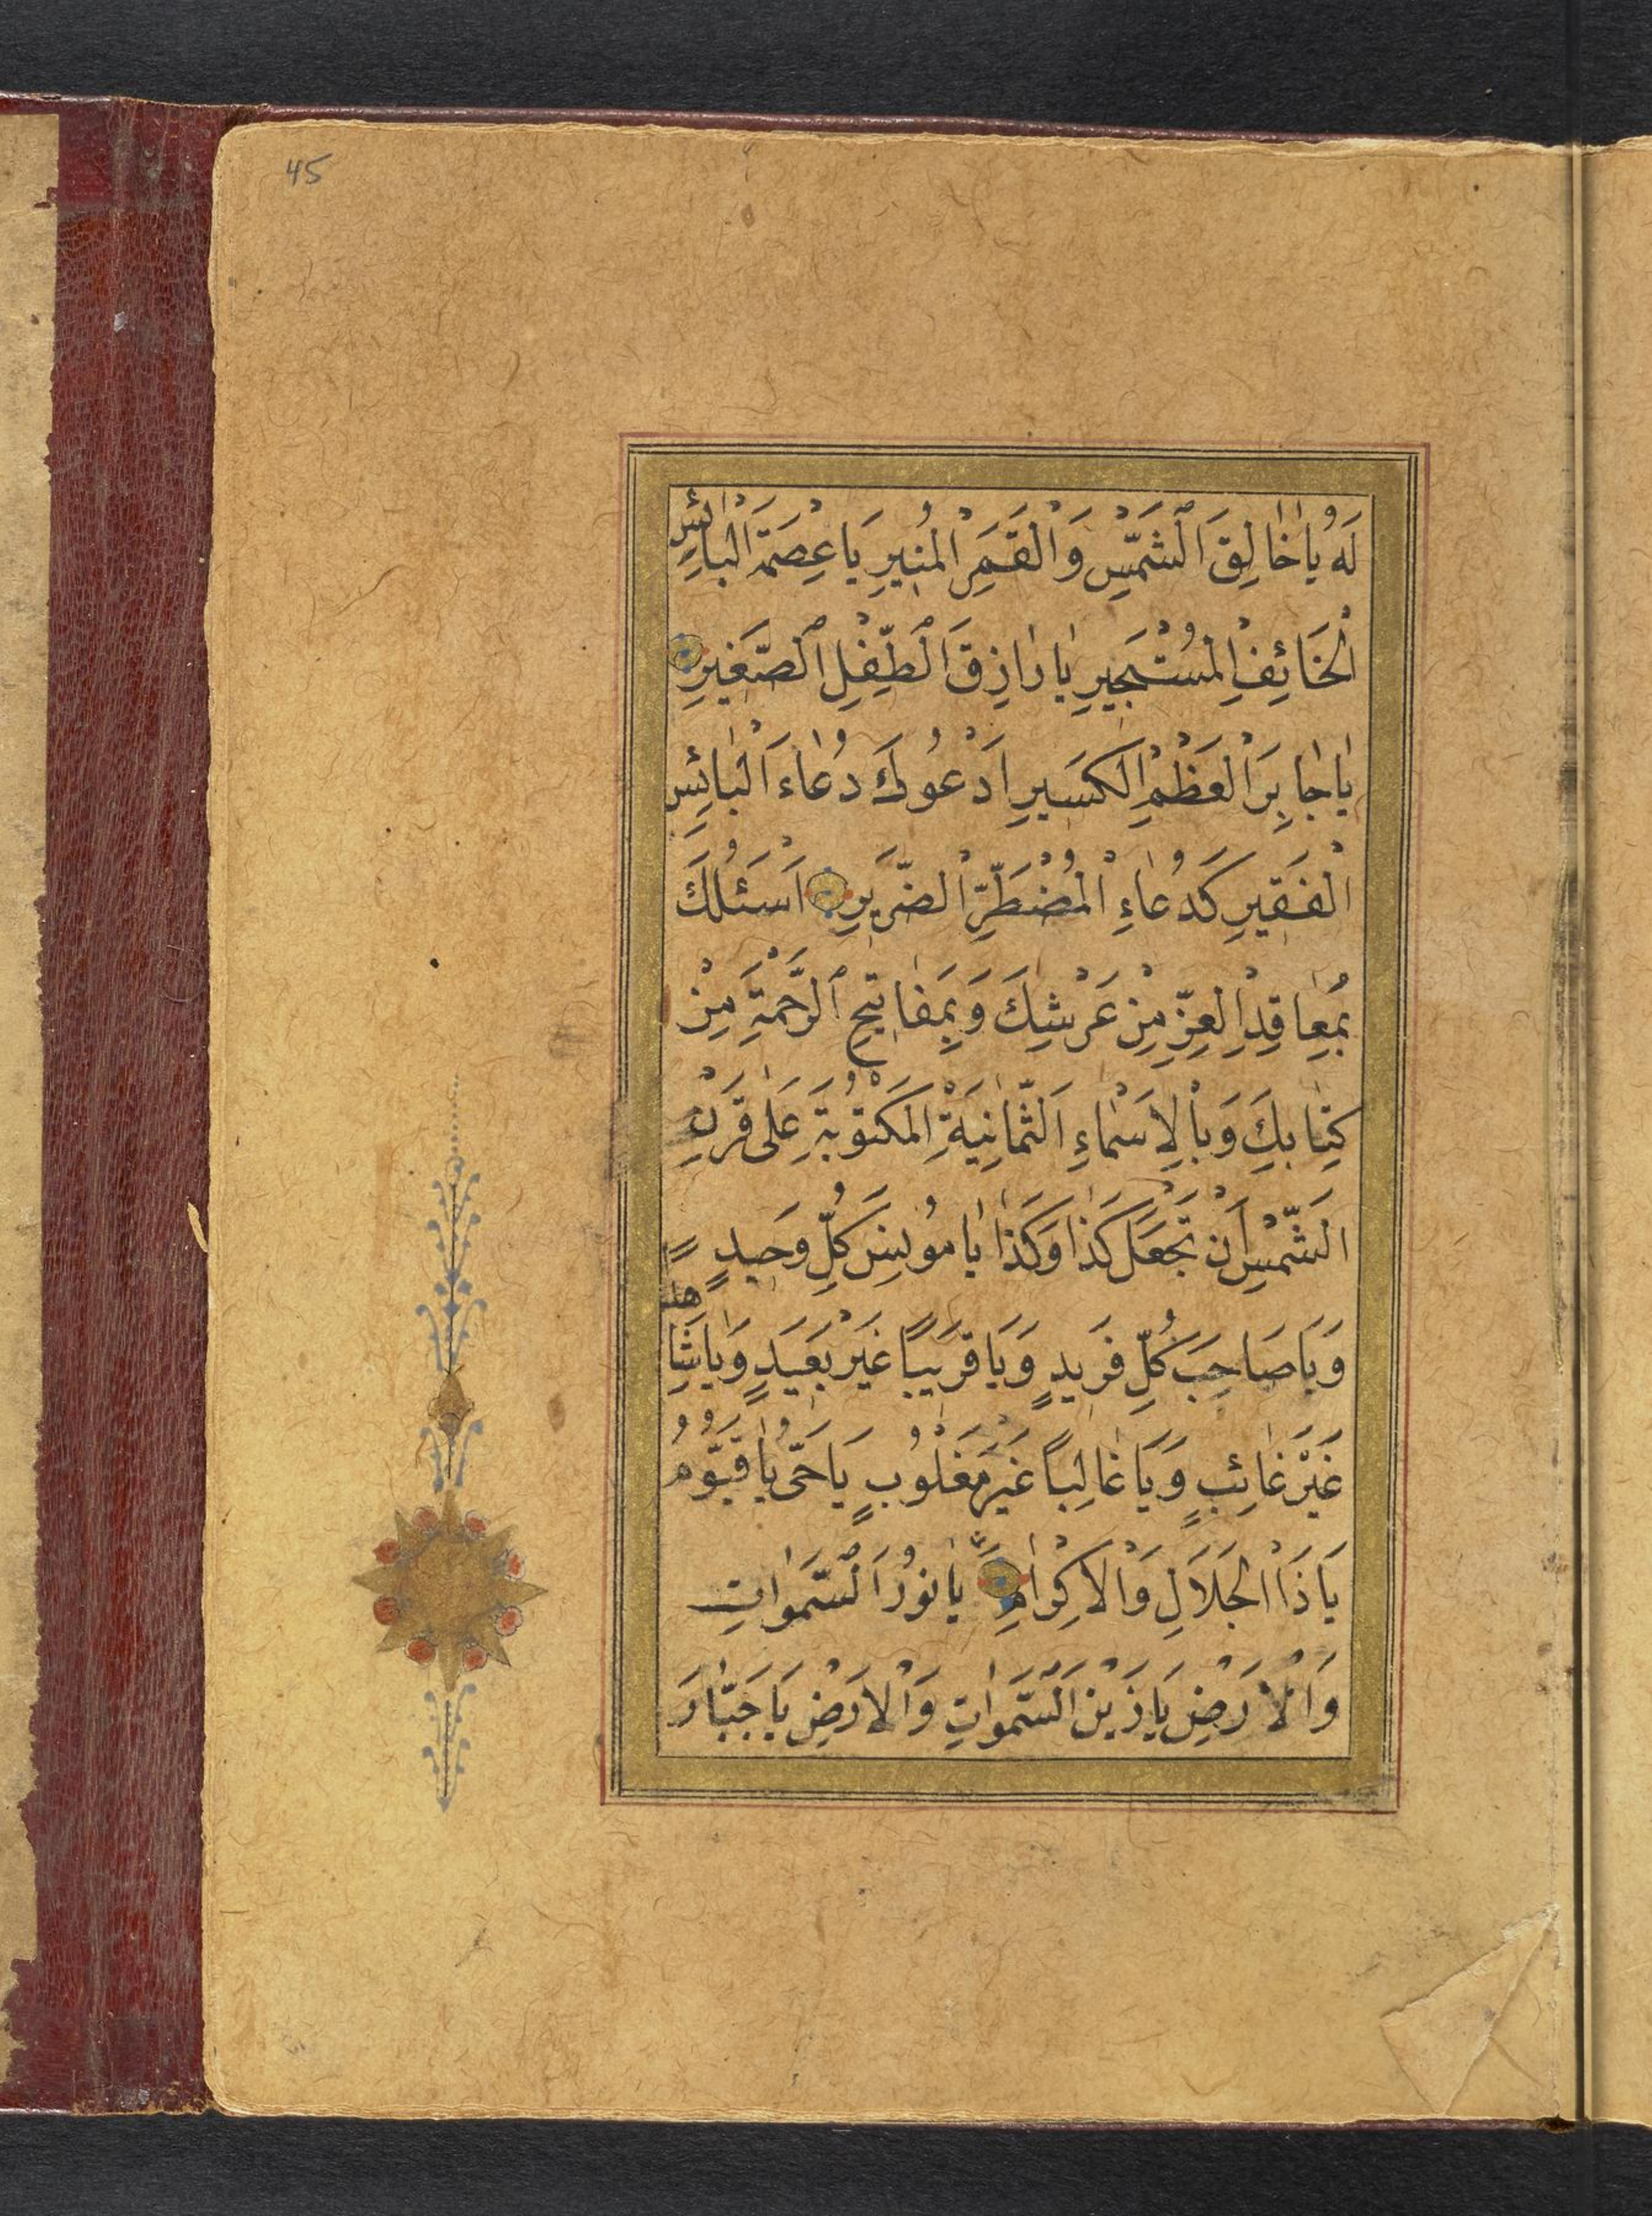 45
لَهُ يَا خَالِقَ الشَّمْسِ وَالْقَمَرِ الْمُنِيرِ يَا عِصْمَةَ الْبَائِسِ
الْخَائِفِ الْمُسْتَجِيرِ يَا رَازِقَ الطِّفْلِ الصَّغِيرِ
يَا جَابِرَ الْعَظْمِ الْكَسِيرِ اَدْعُوكَ دُعَاءَ الْبَائِسِ
الْفَقِيرِ كَدُعَاءِ الْمُضْطَرِّ الضَّرِيرِ اَسْئَلُكَ
بِمَعَاقِدِ الْعِزِّ مِنْ عَرْشِكَ وَبِمَفَاتِيحِ الرَّحْمَةِ مِنْ
كِتَابِكَ وَبِالْاَسْمَاءِ الثَّمَانِيَةِ الْمَكْتُوبَةِ عَلَى قَرْنِ
الشَّمْسِ اَنْ تَجْعَلَ كَذَا وَكَذَا يَا مُونِسَ كُلِّ وَحِيدٍ
وَيَا صَاحِبَ كُلِّ فَرِيدٍ وَيَا قَرِيبًا غَيْرَ بَعِيدٍ وَيَا شَاهِدًا
غَيْرَ غَائِبٍ وَيَا غَالِبًا غَيْرَ مَغْلُوبٍ يَا حَيُّ يَا قَيُّومُ
يَا ذَا الْجَلَالِ وَالْاِكْرَامِ يَا نُورَ السَّمَوَاتِ
وَالْاَرْضِ يَا زَيْنَ السَّمَوَاتِ وَالْاَرْضِ يَا جَبَّارَ